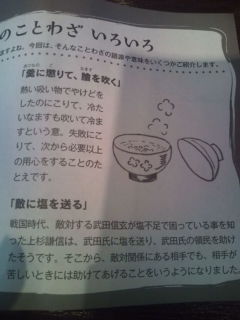 のことわざ いろいろ
ますよね。今回は、そんなことわざの語源や意味をいくつかご紹介します。
「羹に懲りて、膾を吹く」
熱い吸い物でやけどを
したのにこりて、冷た
いなますも吹いて冷ま
すという意。失敗にこ
りて、次から必要以上
の用心をすることのた
とえです。
「敵に塩を送る」
戦国時代、敵対する武田信玄が塩不足で困っている事を知
った上杉謙信は、武田氏に塩を送り、武田氏の領民を助け
たそうです。そこから、敵対関係にある相手でも、相手が
苦しいときには助けてあげることをいうようになりました。